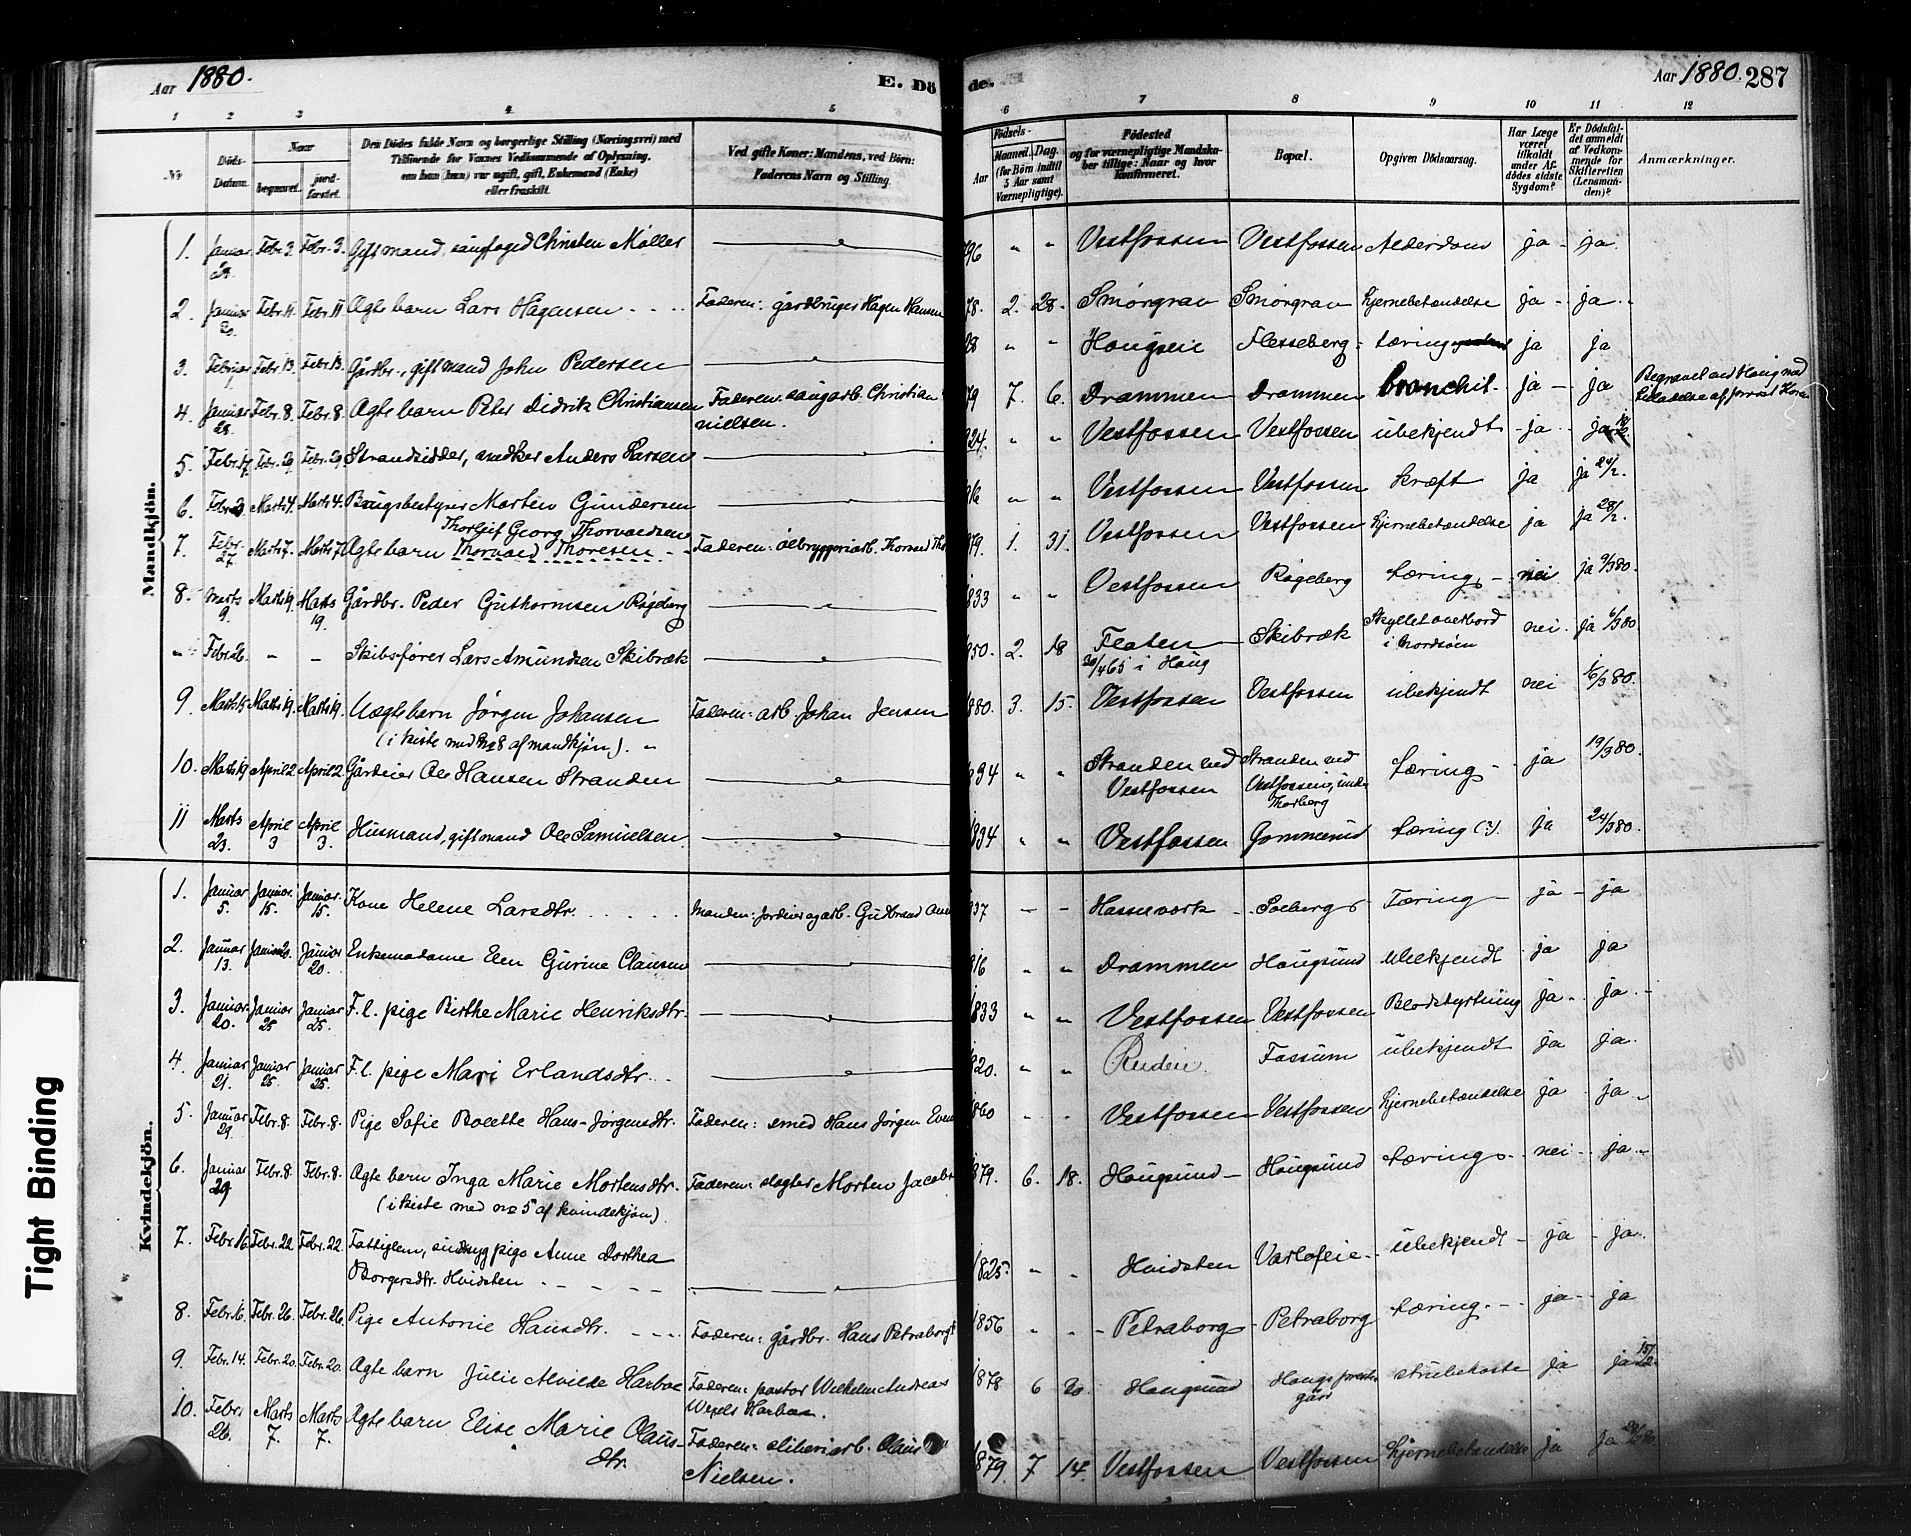 Aar 1880.
E. Dö
de.
Aar 1880. 287
1 2 3 4 5 6 7 8 9 10 11 12
Nr
Döds-Datum.
Naar
begravet.
jord-fæstet.
Den Dödes fulde Navn og borgerlige Stilling (Næringsvei) med
Tilföiende for Voxnes Vedkommende af Oplysning,
om han (hun) var ugift, gift, Enkemand (Enke)
eller fraskilt.
Ved gifte Koner: Mandens, ved Börn:
Faderens Navn og Stilling.
Födsels-
Aar
Maaned. Dag.
(for Börn indtil
5 Aar samt
Værnepligtige).
Födested
og for værnepligtige Mandska-
ber tillige: Naar og hvor
konfirmeret.
Bopæl.
Opgiven Dödsaarsag.
Har Læge
været
tilkaldt
under Af-
dödes sidste
Sygdom?
Er Dödsfal-
det anmeldt
af Vedkom-
mende for
Skifteretten
(Lensman-
den)?
Anmærkninger.
Mandkjön.
1. Januar Febr. 3. Febr. 3. Gift mand, Christen Møller 96 " " Vestfossen Vestfossen Alderdom ja - ja.
2. Januar Febr. 11. Febr. 11 Ægte barn Lars Hågensen Faderen: gårdbruger Hågen Hansen 78. 2. 28. Smørgrav Smørgrav hjernebetændelse ja - ja.
3. Februar Febr. 13. Febr. 13. Gårdbr., gift mand John Pedersen 28 " " Hougseie Flesseberg tæring ja ja
4. Januar 28. Febr. 8. Febr. 8. Ægte barn Peter Didrik Christiansen Faderen: saugarb. Christian Nielsen. 79 7. 6. Drammen Drammen bronchit. ja - ja Begravet ved Houg med
5. Febr. 17. Febr. 29. Febr. 29. Strandsidder, snedker Anders Larsen 824. " " Vestfossen Vestfossen ubekjendt ja ja
6. Marts 4. Marts 4. Brugsbestyrer Morten Gundersen " " Vestfossen Vestfossen kræft ja ja 24/2.
Thorleif Georg Thorvaldsen
7. Febr. 27. Marts 7. Marts 7 Ægte barn Thorvald Thoresen Faderen: ølbryggeriarb. Thorvald 879. 1. 31. Vestfossen Vestfossen hjernebetændelse ja ja 28/2.
8. Marts 9. Marts 19. Marts 19. Gårdbr. Peder Guthormsen Røgeberg 833 " " Vestfossen Røgeberg tæring nei ja 9/3 80.
" Febr. 26. - - Skibsfører Lars Amundsen Skibræk 850. 2. 18 Floten Skibræk Skyllet overbord i Nordsøen nei. ja 6/3 80
i Houg
9. Marts 19. Marts 19. Uægte barn Jørgen Johansen Faderen: arb. Johan Jensen 880. 3. 15. Vestfossen Vestfossen ubekjendt nei 16/3 80.
(i kiste med no 8 af mandkjøn).
10. Marts 19 April 2 April 2 Gårdeier Ole Hansen Stranden " " Stranden ved Vestfossen Stranden ved Vestfossen, under Thorberg tæring ja 19/3 80.
11 Marts 23. April 3 April 3. Husmand, gift mand Ole Samuelsen. 834 " " Vestfossen Gommerud tæring (?). ja 24/3 80.
Kvindekjön.
1. Januar 5. Januar 15. Januar 15. Kone Helene Larsdtr. Manden: jordeier og arb. Gulbrand 837 - - Hasseværk Solberg Tæring ja - ja
2. Januar 13. Januar 20. Januar 20. Enkemadame Elen Gurine Clausen 816 " " Drammen Hougsund ubekjendt ja ja
3. Januar 20. Januar 25 Januar 25. F. l. pige Birthe Marie Henriksdtr. 833 " " Vestfossen Vestfossen Blodstyrtning ja ja
4. Januar 21. Januar 25. Januar 25. F. l. pige Mari Erlandsdtr. 820. " " Ruden Fossum ubekjendt ja ja.
5. Januar 29. Febr. 8. Febr. 8. Pige Sofie Bolette Hans-Jørgensdtr. Faderen: smed Hans Jørgen 860 " " Vestfossen Vestfossen hjernebetændelse ja ja
6. Januar 29 Febr. 8. Febr. 8. Ægte barn Inga Marie Mortensdtr. Faderen: slagter Morten 879. 6. 18. Hougsund Hougsund tæring nei ja
(i kiste med no 5 af kvindekjøn).
7. Febr. 16. Febr. 22 Febr. 22. Fattiglem, sindssyg pige Anne Dorthea
Borgersdtr. Hvidsten 1825. " " Hvidsten Varloeie ubekjendt ja ja.
8. Febr. 16. Febr. 26. Febr. 26. Pige Antonie Hansdtr. Faderen: gårdbr. Hans Petraborg 1856 " " Petraborg Petraborg tæring. ja ja
9. Febr. 14. Febr. 20. Febr. 20. Ægte barn Julie Alvilde Harboe Faderen: pastor Wilhelm Andreas Wexels Harboe. 1878 6 20. Hougsund Hougs præstegård strubehoste ja ja
10. Febr. 26. Marts 7. Marts 7. Ægte barn Elise Marie Olausdtr. Faderen: sliberiarb. Olaus Nielsen. 1879. 7 14. Vestfossen Vestfossen hjernebetændelse ja ja
Tight Binding